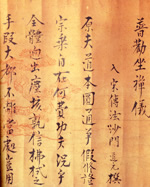 普勸坐禪儀
入宋傳法沙門道元撰
原夫道本圓通爭假修證
宗乘自在何費功夫況乎
全體逈出塵埃孰信拂拭之
手段大都不離當處豈用